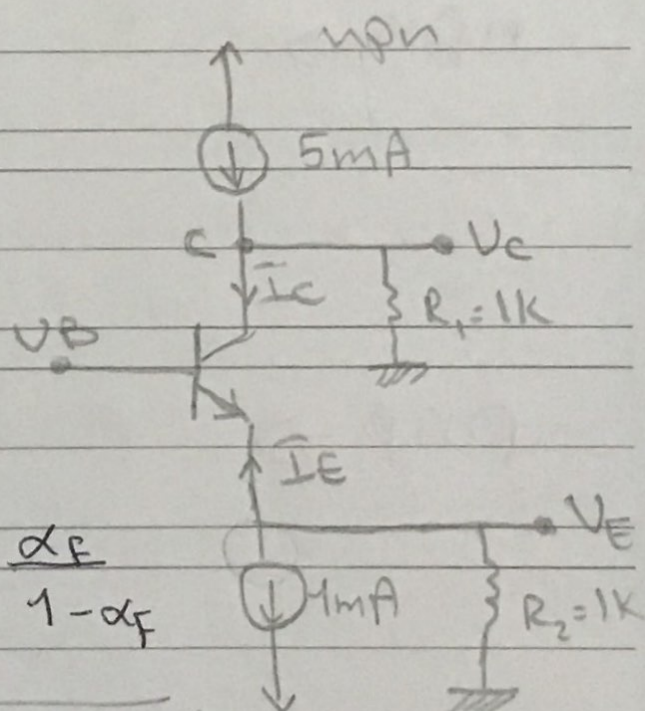 npn
5mA
C
Vc
Ic
R₁=1K
VB
IE
VE
αF
1-αF
1mA
R₂=1K